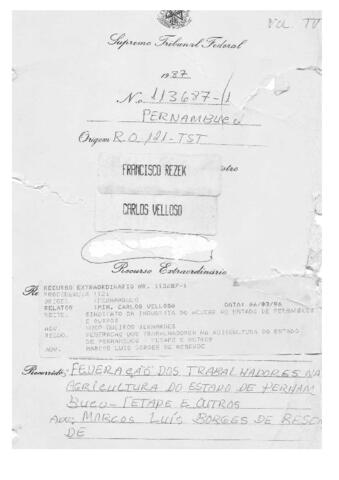 Supremo Tribunal Federal
1987
No. 113687-1
PERNAMBUCO
Origem RO 121-TST
FRANCISCO REZEK
CARLOS VELLOSO
Recurso Extraordinário
RECURSO EXTRAORDINARIO NR. 113687-1
ORIGEM PERNAMBUCO
RELATOR MIN. CARLOS VELLOSO
RECTE. SINDICATO DA INDUSTRIA DO ACUCAR NO ESTADO DE PERNAMBUCO
E OUTROS
ADV.
RECDO. FEDERACAO DOS TRABALHADORES NA AGRICULTURA DO ESTADO
DE PERNAMBUCO - FETAPE E OUTROS
ADV. MARCOS LUIS BORGES DE RESENDE
Recorrido: FEDERAÇÃO DOS TRABALHADORES NA
AGRICULTURA DO ESTADO DE PERNAM
BUCO - FETAPE E OUTROS
Adv: MARCOS LUÍS BORGES DE RESEN
DE